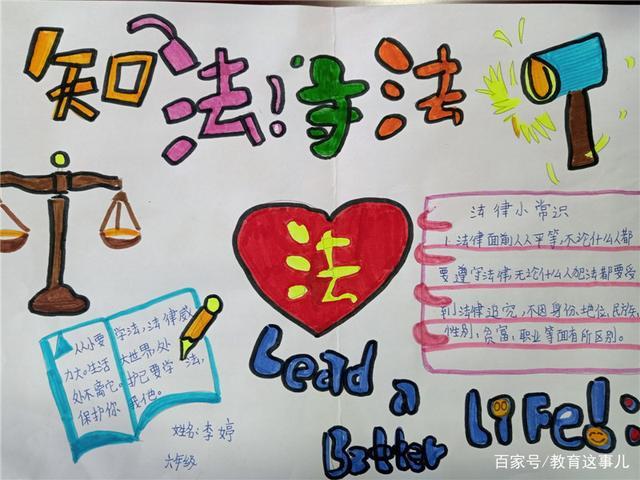 知法!守法
法
法律小常识
1.法律面前人人平等,不论什么人都
要遵守法律,无论什么人犯法都要受
到法律追究,不因身份、地位、民族、
性别、贫富、职业等面有所区别。
从小要学法,法律威
力大。生活大世界,处
处不离它。护己要学法,
保护你我他。
姓名:李婷
六年级
Lead a
Better LiFe!
百家号/教育这事儿